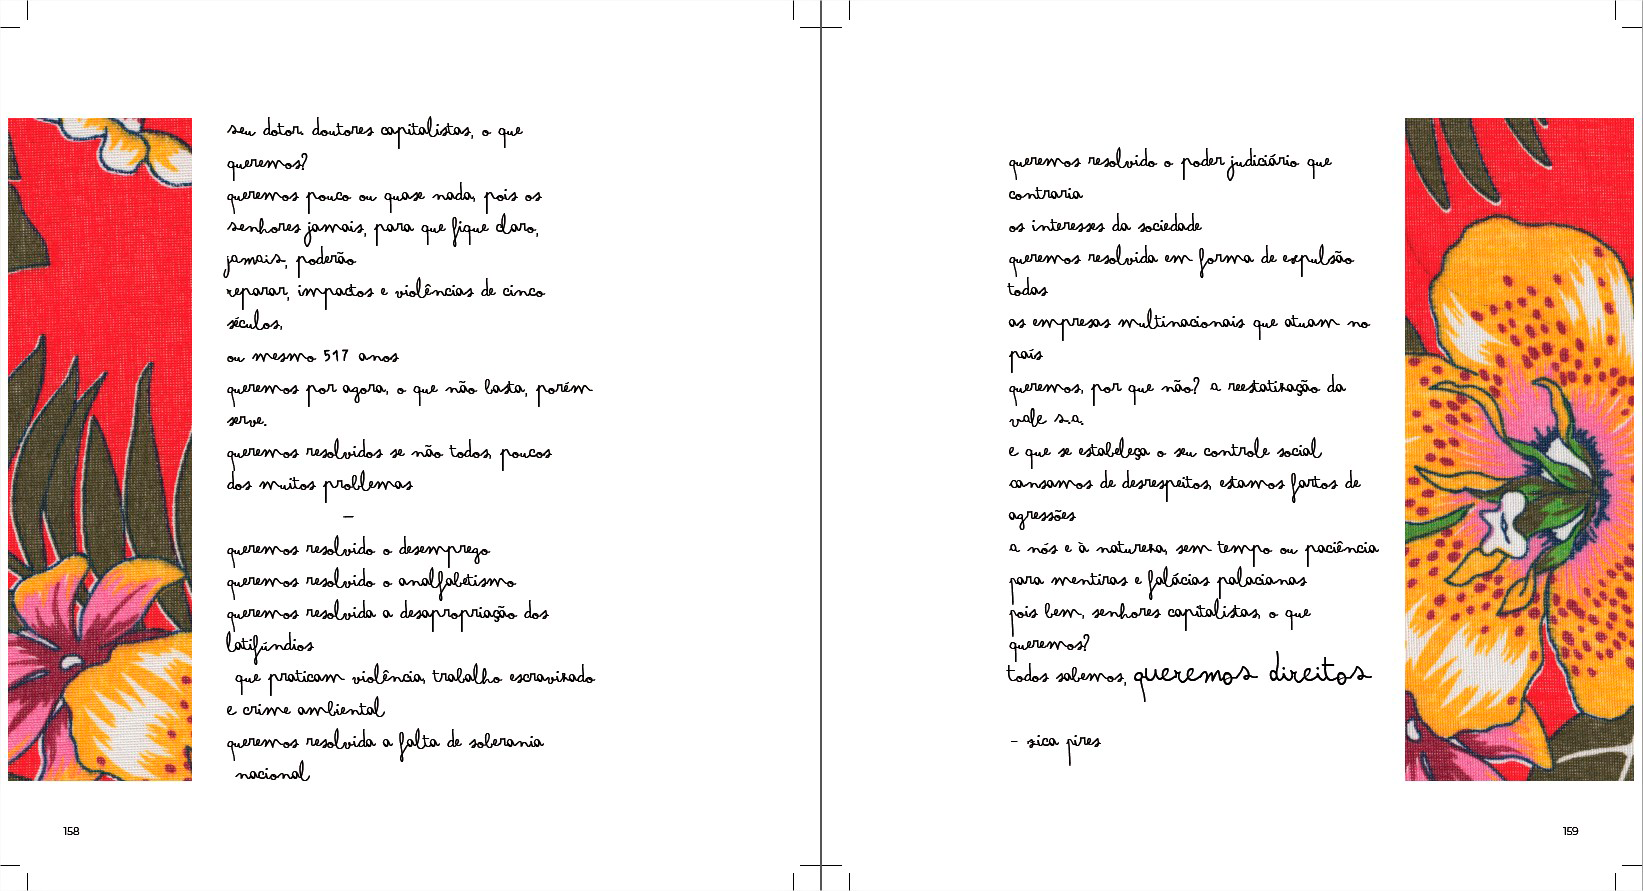 seu dotor. doutores capitalistas, o que
queremos?
queremos pouco ou quase nada, pois os
senhores jamais, para que fique claro,
jamais, poderão
reparar, impactos e violências de cinco
séculos,
ou mesmo 517 anos
queremos por agora, o que não basta, porém
serve.
queremos resolvidos se não todos, poucos
dos muitos problemas
–
queremos resolvido o desemprego
queremos resolvido o analfabetismo
queremos resolvida a desapropriação dos
latifúndios
que praticam violência, trabalho escravizado
e crime ambiental
queremos resolvida a falta de soberania
nacional
158
queremos resolvido o poder judiciário que
contraria
os interesses da sociedade
queremos resolvida em forma de expulsão
todas
as empresas multinacionais que atuam no
país
queremos, por que não? a reestatização da
vale s.a.
e que se estabeleça o seu controle social
cansamos de desrespeitos, estamos fartos de
agressões
a nós e à natureza, sem tempo ou paciência
para mentiras e falácias palacianas
pois bem, senhores capitalistas, o que
queremos?
todos sabemos, queremos direitos
- sica pires
159